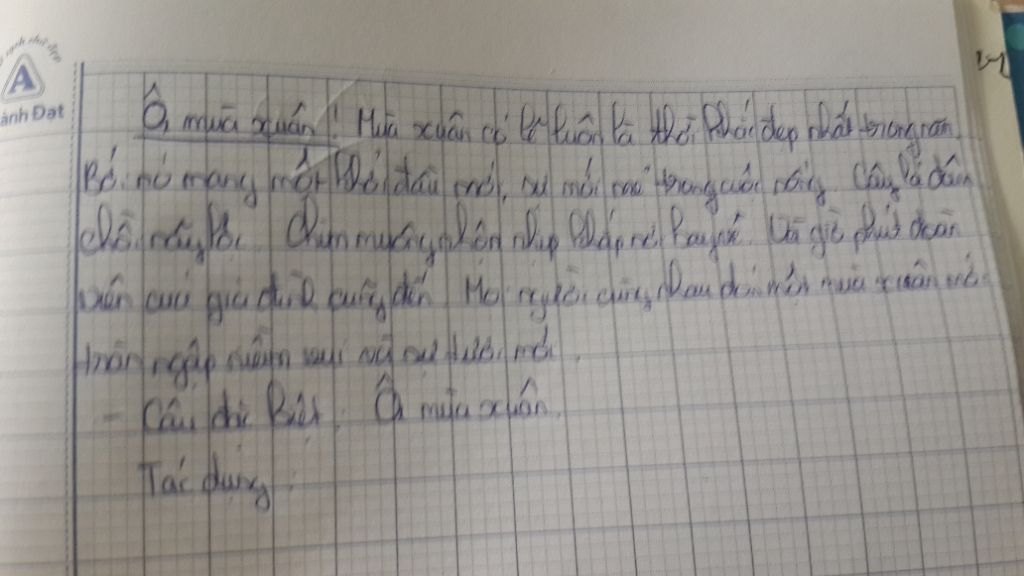 ạch chữ đẹp
A
ành Đạt
Ôi mùa xuân! Mùa xuân có lẽ luôn là thời khắc đẹp nhất trong năm
Bởi nó mang một khởi đầu mới, sự mới mẻ trong cuộc sống. Cây lá đâm
chồi nảy lộc. Chim muông nhộn nhịp khắp nơi. Và giờ phút đoàn
viên của gia đình cũng đến. Mọi người cùng nhau đón một mùa xuân mới
tràn ngập niềm vui và sự tươi mới.
- Câu đặc biệt: Ôi mùa xuân.
Tác dụng: